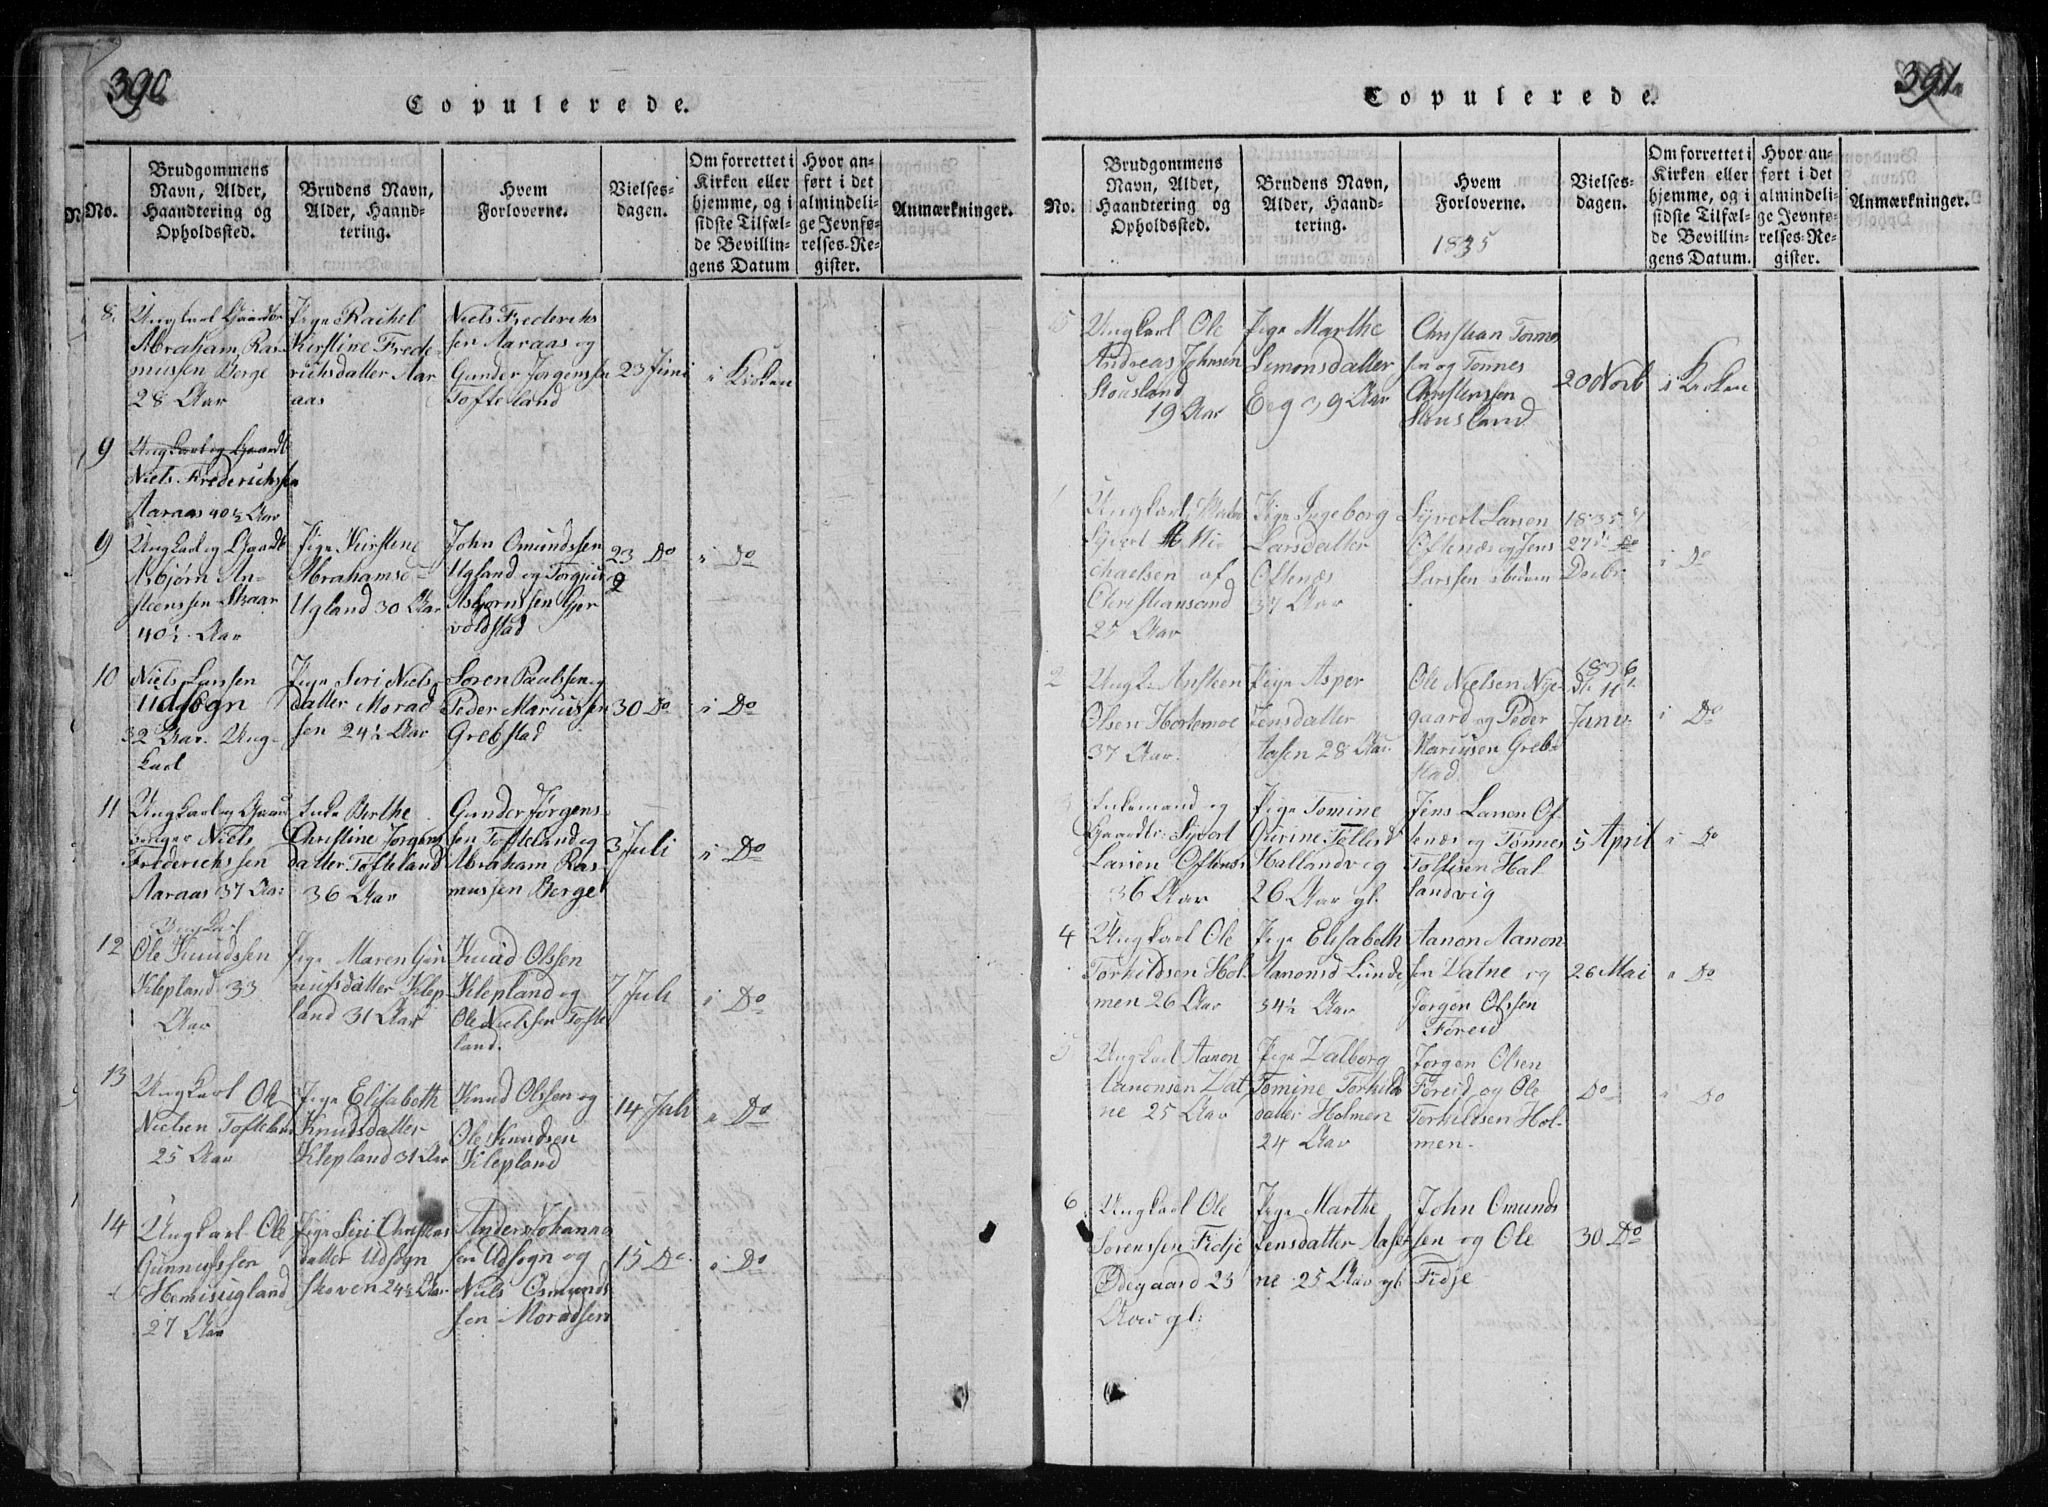 390
Copulerede.
No.
Brudgommens Navn, Alder, Haandtering og Opholdssted.
Brudens Navn, Alder, Haandtering.
Hvem Forloverne.
Vielsesdagen.
Om forrettet i Kirken eller hjemme, og i sidste Tilfælde Bevillingens Datum
Hvor anført i det almindelige Jevnførelses-Register.
Anmærkninger.
8.
Ungkarl Gaardbr
Abraham Ras-
mussen Berge
28 Aar
Pige Rachel
Kirstine Frede-
richsdatter Aar
aas
Niels Frederichs
sen Aaraas og
Gunder Jørgensen
Tofteland
23 Juni
i Kirken
9
Ungkarl og Gaardb
Niels Frederichssen
Aaraas 40½ Aar
9
Ungkarl og Gaardb
Asbjørn An-
steenssen Skaar
40½ Aar
Pige Kirstene
Abrahamsd
Ugland 30 Aar
John Omundssen
Ugland og Torgjus
Asbjørnssen Gjer
voldstad
23 Do
i Do
10
Niels Larssen
Udsogn
32 Aar. Ung-
karl
Pige Seri Niels
datter Morad
sen 24½ Aar
Søren Paulssen og
Peder Mariussen
Grebstad
30 Do
i Do
11
Ungkarl og Gaard
bruger Niels
Frederichssen
Aaraas 37 Aar
Enke Berthe
Christine Jørgens
datter Tofteland
36 Aar
Gunder Jørgens-
sen Tofteland og
Abraham Ras
mussen Berge
3 Juli
i Do
12
Ungkarl
Ole Knudssen
Klepland 33
Aar
Pige Maren Gun
nufsdatter Klep
land 31 Aar
Knud Olssen
Klepland og
Ole Nielssen Tofte
land.
7 Juli
i Do
13
Ungkarl Ole
Nielsen Tofteland
25 Aar
Pige Elisabeth
Knudsdatter
Klepland 31 Aar
Knud Olssen og
Ole Knudsen
Klepland
14 Juli
i Do
14
Ungkarl Ole
Gunnufssen
Hemisugland
27 Aar
Pige Siri Christens
datter Udsogn
skoven 24½ Aar
Anders Johanne
sen Udsogn og
Niels Osmunds
sen Moradsen
15 Do
i Do
391.
Copulerede.
No.
Brudgommens Navn, Alder, Haandtering og Opholdssted.
Brudens Navn, Alder, Haandtering.
Hvem Forloverne.
1835
Vielsesdagen.
Om forrettet i Kirken eller hjemme, og i sidste Tilfælde Bevillingens Datum.
Hvor anført i det almindelige Jevnførelses-Register.
Anmærkninger.
15
Ungkarl Ole
Andreas Johnsen
Stousland
19 Aar
Pige Marthe
Simonsdatter
Eeg 39 Aar
Christian Tønnes
sen og Tønnes
Christenssen
Stousland
20 Novb
i Kirken
1
Ungkarl
Syvert Mi-
chaelsen af
Christiansand
25 Aar
Pige Ingeborg
Larsdatter
Oftenæs
37 Aar
Syvert Larsen
Oftenæs og Jens
Larssen ibidem
1835
27de
Decbr
i Do
2
Ungk. Ansteen
Olsen Hortemoe
37 Aar.
Pige Asper
Jensdatter
Aasen 28 Aar
Ole Nielsen Nye-
gaard og Peder
Mariusen Greb
stad.
1836
D. 11te
Janu.
i Do
3
Enkemand og
Gaardbr. Syvert
Larsen Oftenæs
36 Aar
Pige Tomine
Gurine Tollest
Hallandvig
26 Aar gl.
Jens Larsen Of
tenæs og Tønnes
Tollisen Hal-
landvig
5 April
i Do
4
Ungkarl Ole
Torkildsen Hol
men 26 Aar
Pige Elisabeth
Aanonsd Lunde
34½ Aar
Aanon Aanon
sen Vatne og
Jørgen Olssen
Føreid
26 Mai
i Do
5
Ungkarl Aanon
Aanonsen Vat
ne 25 Aar
Pige Valborg
Tomine Torkilds
datter Holmen
24 Aar
Jørgen Olsen
Føreid og Ole
Torkildsen Hol-
men.
Do
i Do
6
Ungkarl Ole
Sørenssen Fidje
Ødegaard 23
Aar gl:
Pige Marthe
Jensdatter Aase
ne 25 Aar gl
John Omunds
sen og Ole
Fidje
30 Do